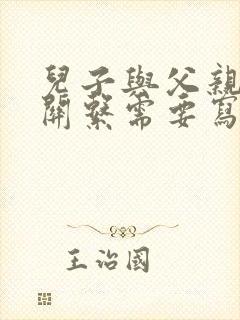 兒子與父親
關繫需要寫
王治國